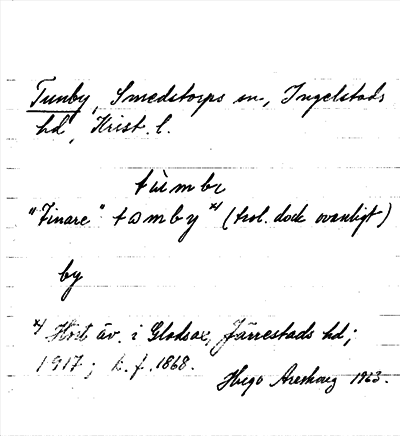 Tunby, Smedstorps sn, Ingelstads
hd, Krist. l.
tùmbɩ
"Finare" tɷmby x) (trol. dock ovanligt)
by
x) Hört äv. i Glodsax, Järrestads hd;
1917; k. f. 1868.
Hugo Areskoug 1963.